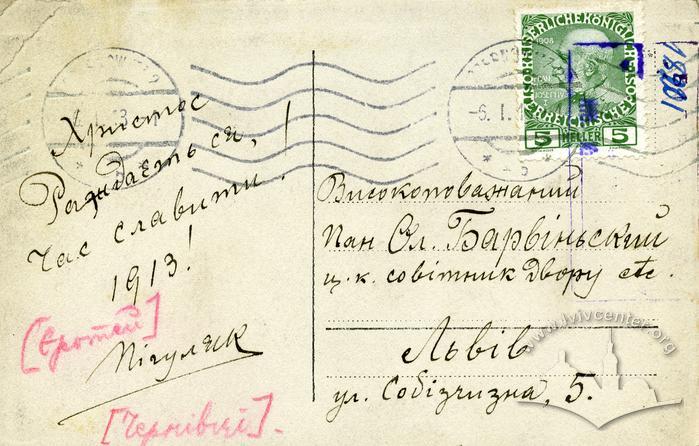 Христос
Раждаеть ся,
час славити!
1913!
Пігуляк
[Єротей]
[Чернівці].
-6.I.
KAISERLICHE KÖNIGLICHE
ÖSTERREICHISCHE
1908
5 HELLER 5
Високоповажаний
Пан Ол. Барвіньский
ц. к. совітник Двору etc.
Львів
ул. Собізчизна, 5.
www.lvivcenter.org